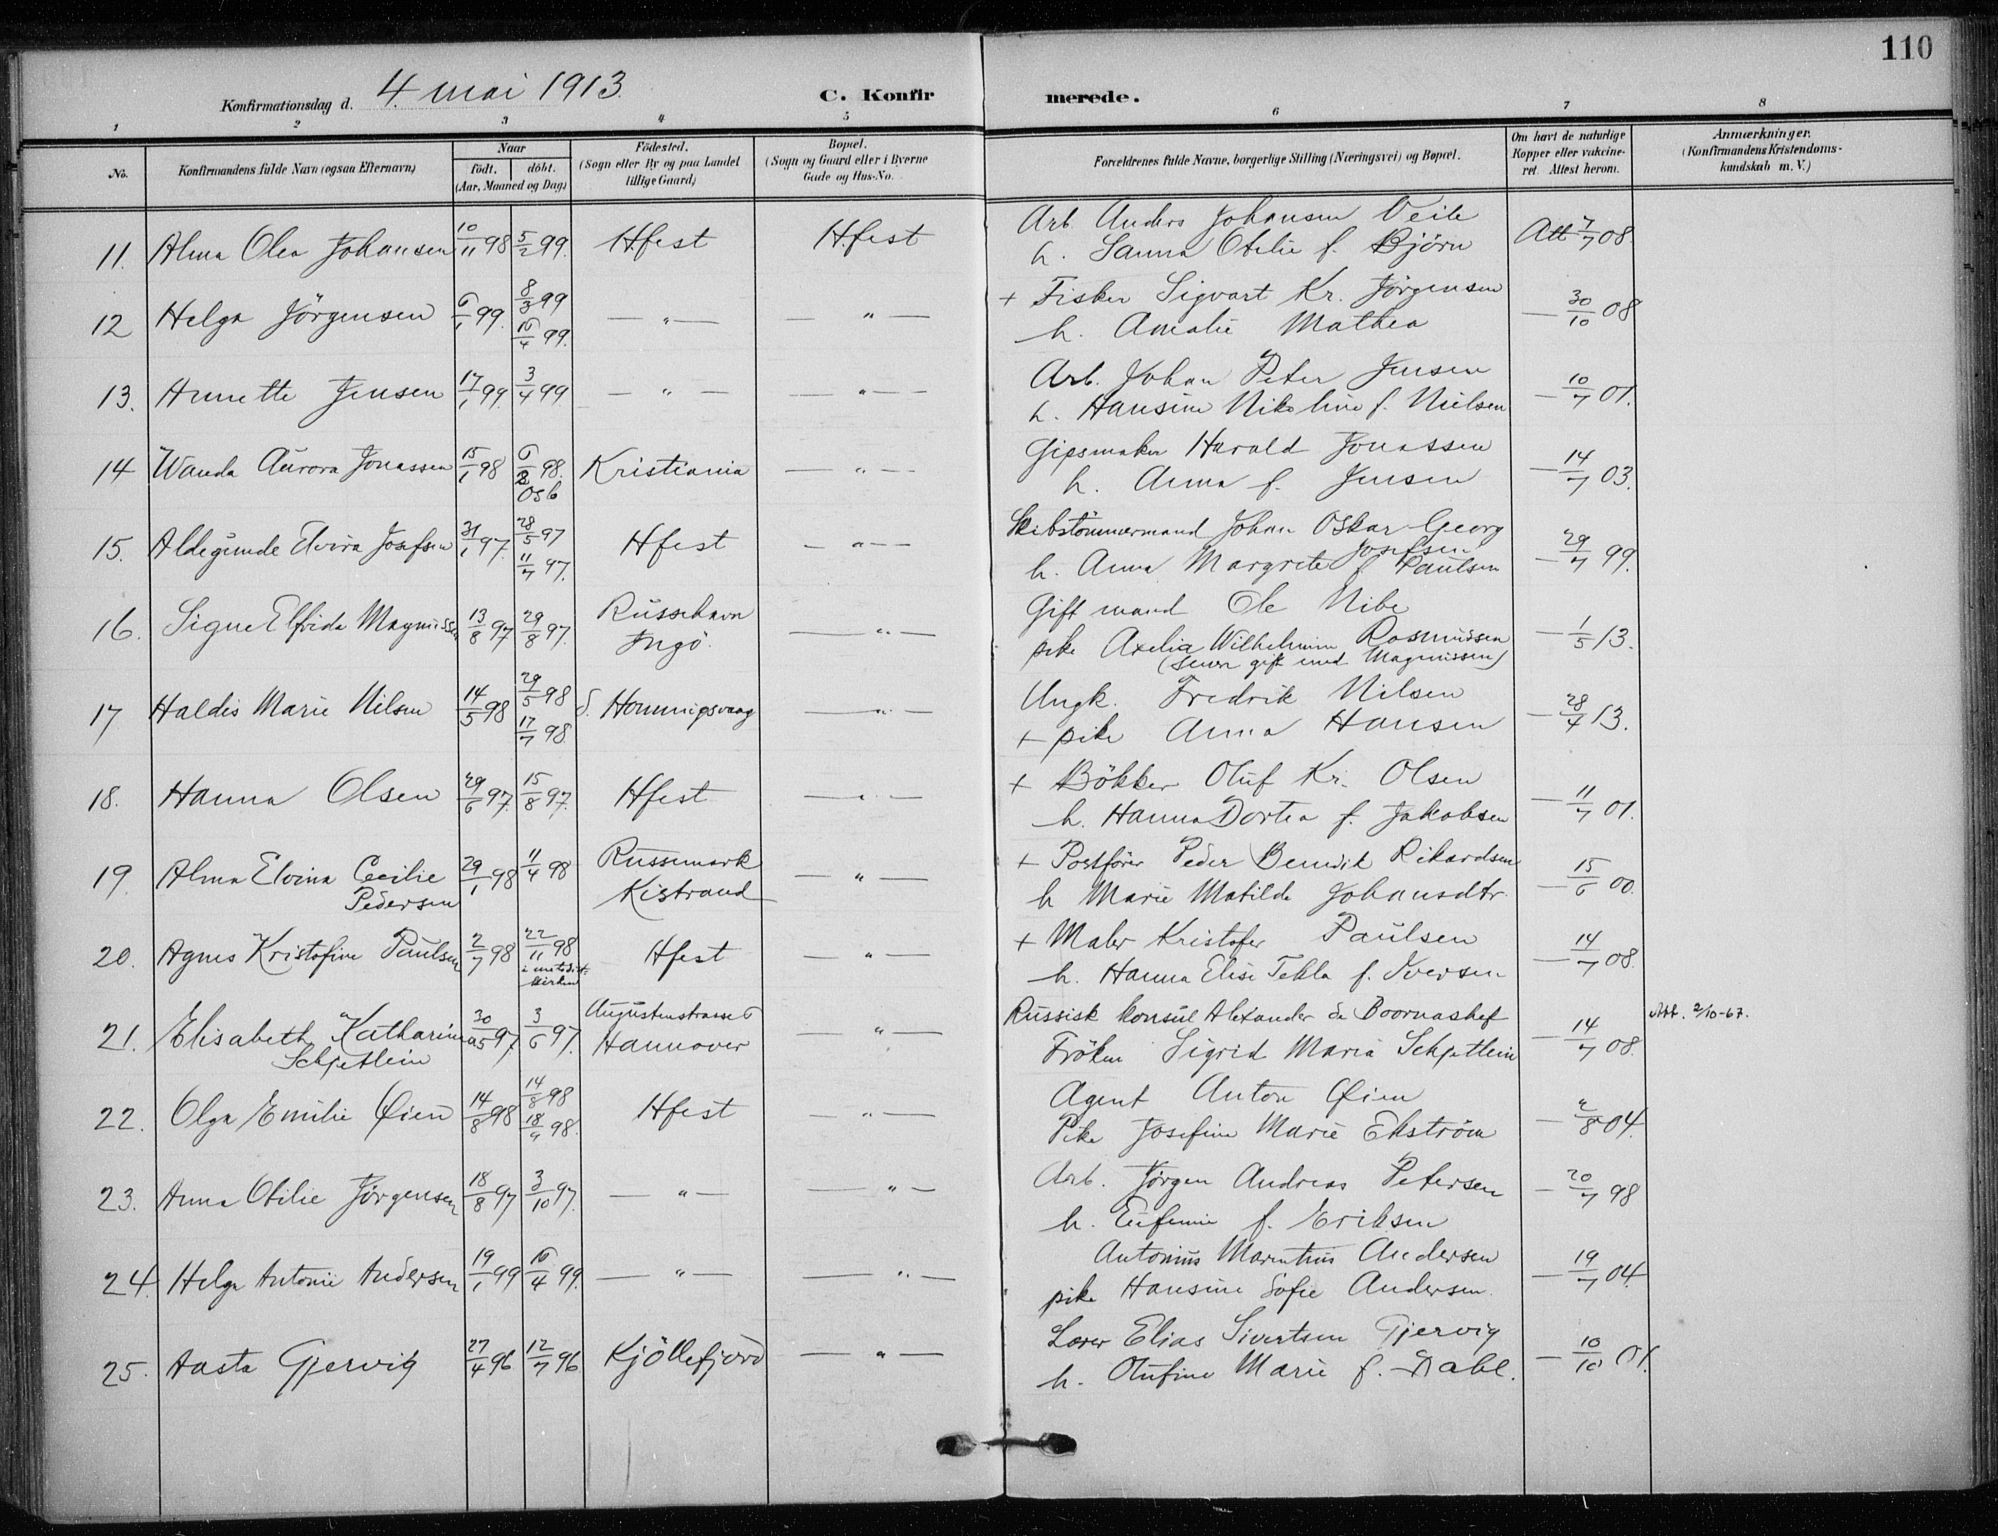 110
Konfirmationsdag d. 4. mai 1913. C. Konfir merede.
1 2 3 4 5 6 7 8
No. Konfirmandens fulde Navn (ogsaa Efternavn) Naar født, døbt. (Aar, Maaned og Dag) Fødested. (Sogn eller By og paa Landet tillige Gaard) Bopæl. (Sogn og Gaard eller i Byerne Gade og Hus-No. Forældrenes fulde Navne, borgerlige Stilling (Næringsvei) og Bopæl. Om havt de naturlige Kopper eller vakcineret. Attest herom. Anmærkninger. (Konfirmandens Kristendomskundskab m. V.)
11. Alma Olea Johansen 10/11 98 5/2 99. Hfest Hfest Arb. Anders Johansen Veile Att 7/7 08
h. Sanna Otilie f. Björn
12 Helga Jörgensen 6/1 99. 8/3 99 — " — — " — + Fisker Sigvart Kr. Jørgensen — 30/10 08
16/4 99. h. Amalie Mathea
13. Annette Jensen 17/1 99. 3/4 99 — " — — " — Arb. Johan Peter Jensen — 10/7 01.
h. Hansine Nikoline f. Nielsen
14 Wanda Aurora Jonassen 15/1 98 6/2 98. Kristiania — " — Gipsmaker Harald Jonassen — 14/7 03.
Oslo h. Anna f. Jensen
15. Aldegunde Elvira Josefsen 31/1 97. 28/5 97 Hfest — " — Skibstömmermand Johan Oskar Georg Josefsen — 29/7 99.
11/7 97. h. Anna Margrete f. Paulsen
16. Signe Elfrida Magnussen 13/8 97. 29/8 97. Russehavn — " — Gift mand Ole Nibe — 1/5 13.
Ingö. pike Axelia Wilhelmine Rasmussen
(senere gift med Magnussen)
17 Haldis Marie Nilsen 14/5 98 29/5 98 S. Honningsvaag — " — Ungk. Fredrik Nilsen — 28/4 13.
17/7 98 + pike Anna Hansen
18. Hanna Olsen 29/6 97. 15/8 97. Hfest — " — + Bökker Oluf Kr. Olsen — 11/7 01.
h. Hanna Dortea f. Jakobsen
19. Alma Elvina Cecilie 29/1 98 11/4 98 Russemark — " — + Postfører Peder Benedik Rikardsen — 15/6 00.
Pedersen Kistrand h Marie Matilde Johansdtr.
20. Agnes Kristofine Paulsen 2/7 98 22/11 98 Hfest — " — + Maler Kristofer Paulsen — 14/7 08.
i metodist-kirken h. Hanna Elise Tekla f. Iversen
21. Elisabeth Katharina 30/5 97. 3/6 97. Augustenstrasse 6 — " — Russisk konsul Alexander de Boornashef — 14/7 08. Att. 2/10-67.
Schjetlein Hannover Fröken Sigrid Maria Schjetlein
22. Olga Emilie Øien 14/8 98 14/8 98 Hfest — " — Agent Anton Øien — 2/8 04.
18/9 98. Pike Josefine Marie Ekström
23. Anna Otilie Jørgensen 18/8 97 3/10 97. — " — — " — Arb. Jørgen Andreas Petersen — 20/7 98
h. Eufemie f. Eriksen
24. Helga Antonie Andersen 19/1 99 16/4 99. — " — — " — Antonius Marentius Andersen — 19/7 04.
pike Hansine Sofie Andersen.
25. Aasta Gjervig 27/4 96 12/7 96 Kjöllefjord — " — Lærer Elias Sivertsen Gjervig — 10/10 01.
h. Olufine Marie f. Dahl.